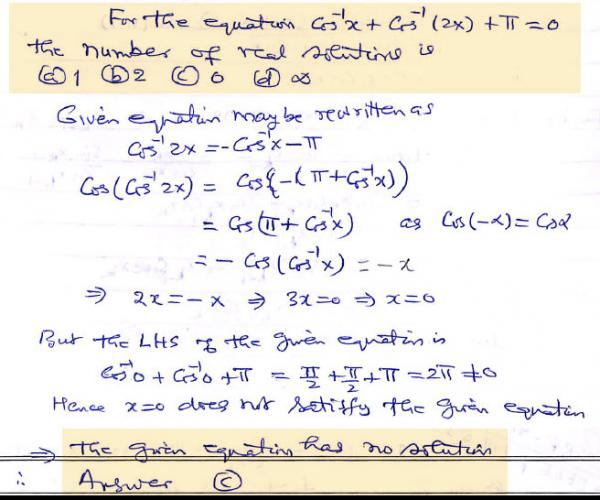 For the equation Cos⁻¹x + Cos⁻¹(2x) + π = 0
the number of real solutions is
(a) 1 (b) 2 (c) 0 (d) ∞
Given equation may be rewritten as
Cos⁻¹2x = -Cos⁻¹x - π
Cos(Cos⁻¹2x) = Cos{-(π + Cos⁻¹x))
= Cos(π + Cos⁻¹x) as Cos(-α) = Cosα
= - Cos(Cos⁻¹x) = -x
⇒ 2x = -x ⇒ 3x = 0 ⇒ x = 0
But the LHS of the given equation is
Cos⁻¹0 + Cos⁻¹0 + π = π/2 + π/2 + π = 2π ≠ 0
Hence x=0 does not satisfy the given equation
⇒ The given equation has no solution
∴ Answer (c)